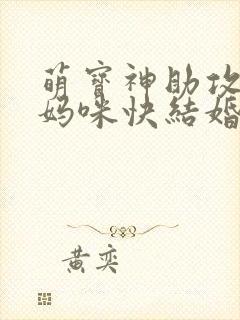 萌寶神助攻
媽咪快結婚
黃奕